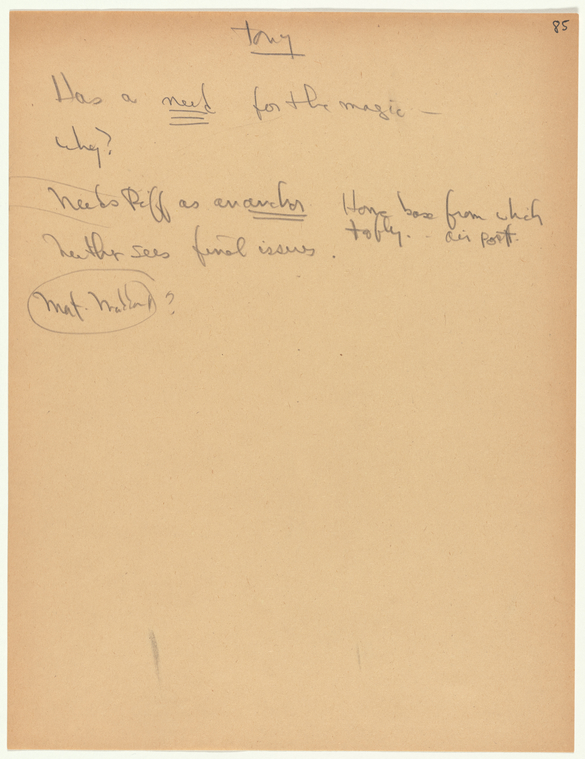 85
Tony
Has a need for the magic —
why?
Needs Riff as an anchor. Home base from which
to fly. - air port.
Neither sees final issues.
Mat. ?